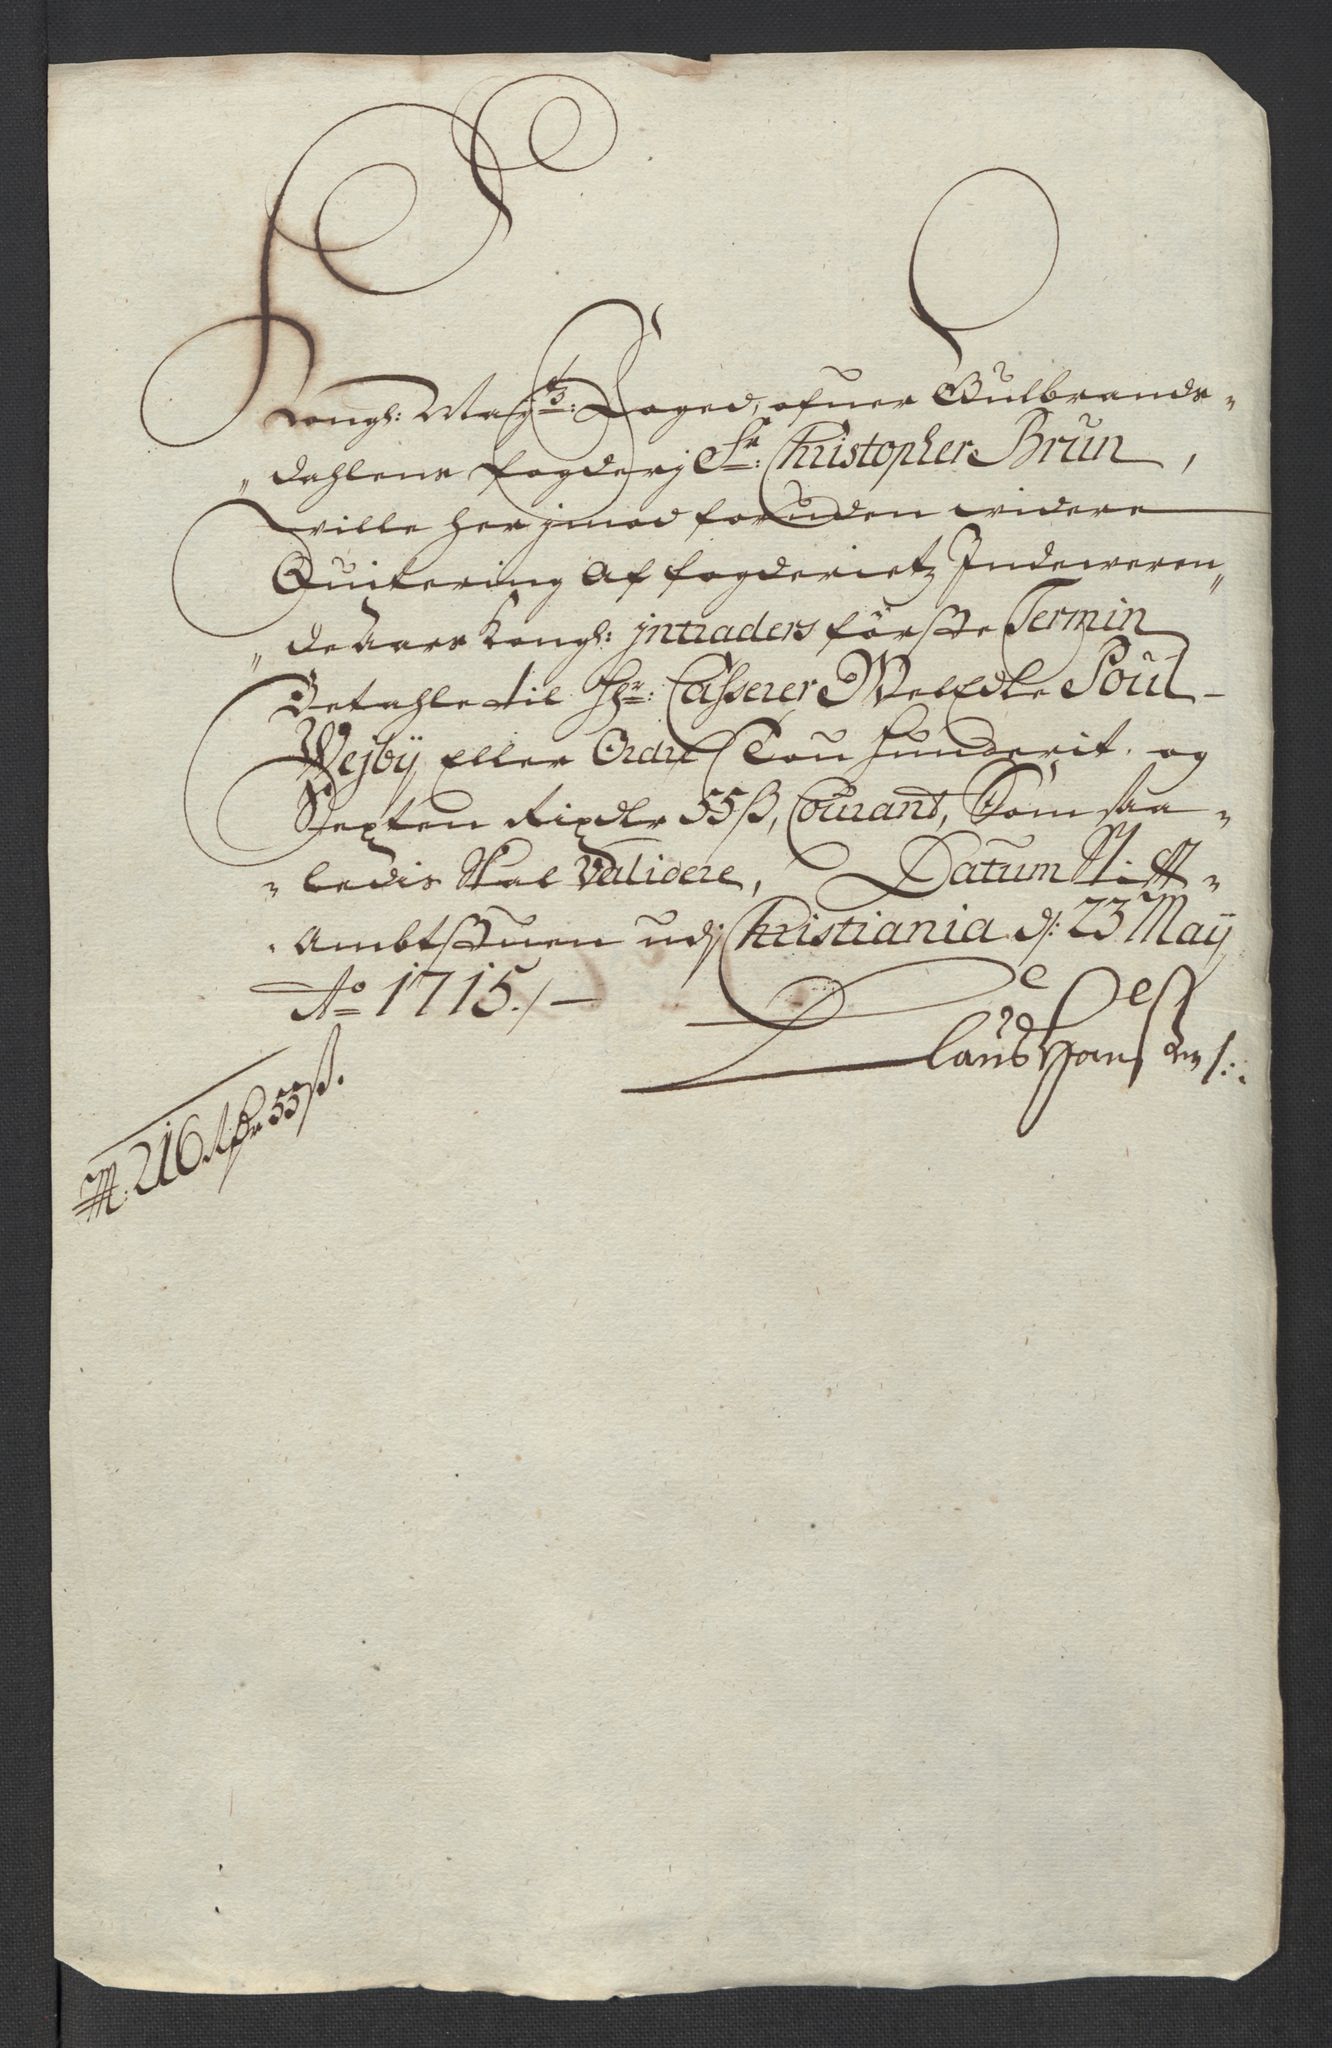 Kongl: May:ts Foged, ofuer Gulbrands=
"dahlens fogderj Sr: Christopher Brun,
wille her jmod foruden widere
Quitering af fogderietz Indeweren"
"de Aars Kongl: jntraders förste Termin
Betahle til Hr: Casserer WelEdle Poul
Wejbÿ Eller Ordre Tou Hunderit og
Sexten Rixdlr 55 ß, Courant, Som saa=
=ledis Skal Validere, Datum Stifft=
=Ambtstuen udj Christiania d: 23 May
Ao 1715./–
Claus Hansen
216 Rdr 55 ß.